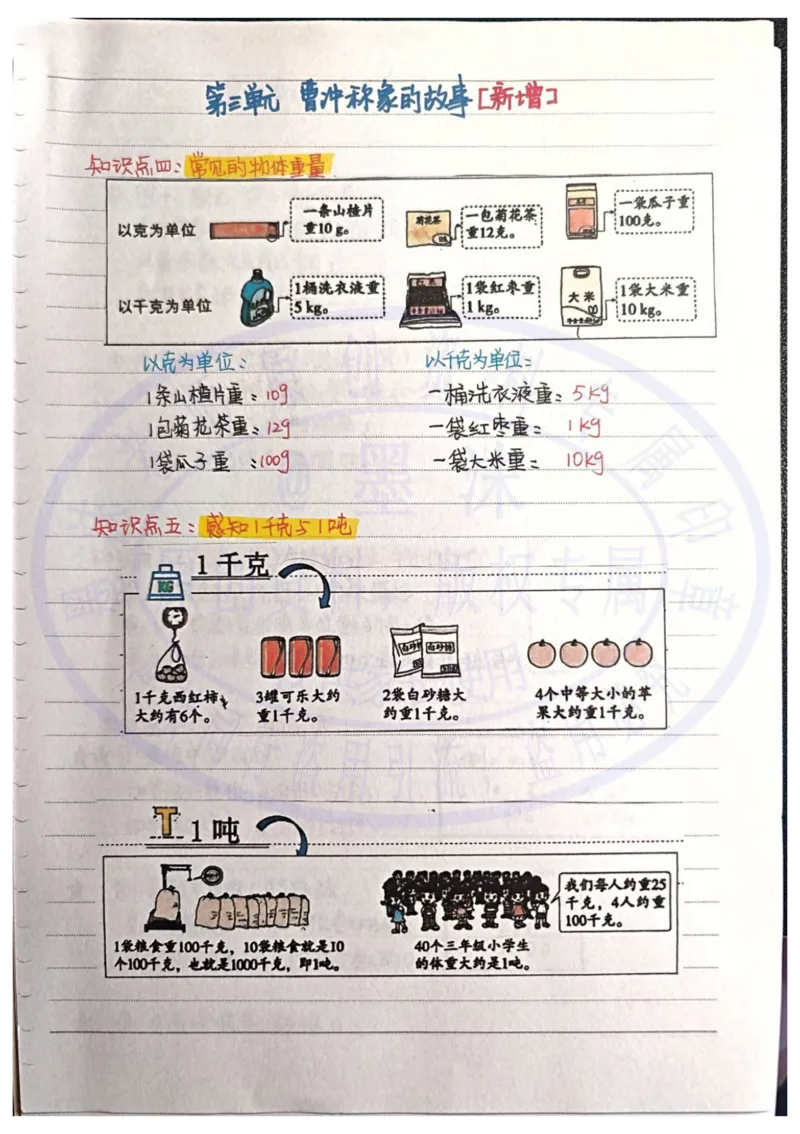 第三单元 曹冲称象的故事[新增]
知识点四:常见的物体重量
以克为单位
一条山楂片
重10 g。
荷花茶
一包菊花茶
重12克。
一袋瓜子重
100克。
以千克为单位
1桶洗衣液重
5 kg。
1袋红枣重
1 kg。
大米
1袋大米重
10 kg。
以克为单位:
以千克为单位:
1条山楂片重:10g
一桶洗衣液重:5kg
1包菊花茶重:12g
一袋红枣重:1kg
1袋瓜子重:100g
一袋大米重:10kg
知识点五:感知1千克与1吨
KG
1千克
白砂糖
白砂糖
1千克西红柿
大约有6个。
3罐可乐大约
重1千克。
2袋白砂糖大
约重1千克。
4个中等大小的苹
果大约重1千克。
T
1吨
我们每人约重25
千克,4人约重
100千克。
1袋粮食重100千克,10袋粮食就是10
个100千克,也就是1000千克,即1吨。
40个三年级小学生
的体重大约是1吨。
版权专属